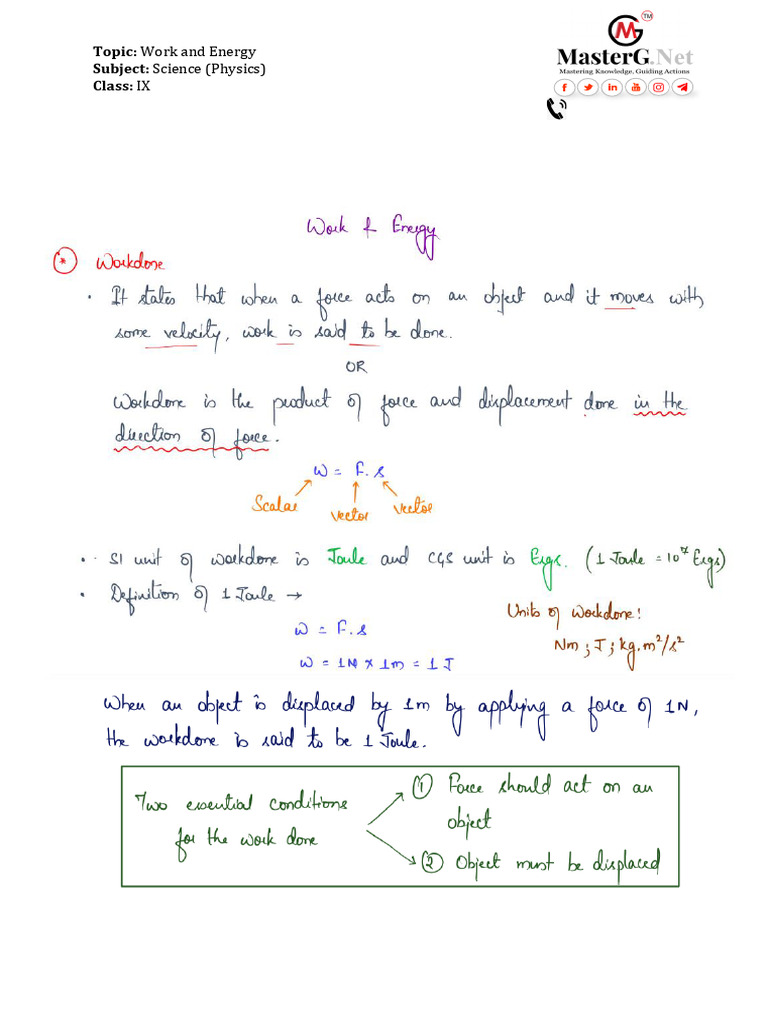 Topic: Work and Energy
Subject: Science (Physics)
Class: IX
MG
TM
MasterG.Net
Mastering Knowledge, Guiding Actions
Work & Energy
* Workdone
• It states that when a force acts on an object and it moves with
some velocity, work is said to be done.
OR
Workdone is the product of force and displacement done in the
direction of force.
W = F.s
Scalar vector vector
• SI unit of workdone is Joule and CGS unit is Ergs. (1 Joule = 10⁷ Ergs)
• Definition of 1 Joule →
W = F.s
W = 1N × 1m = 1 J
Units of workdone:
Nm ; J ; kg.m²/s²
When an object is displaced by 1m by applying a force of 1N,
the workdone is said to be 1 Joule.
Two essential conditions
for the work done
① Force should act on an
object
② Object must be displaced